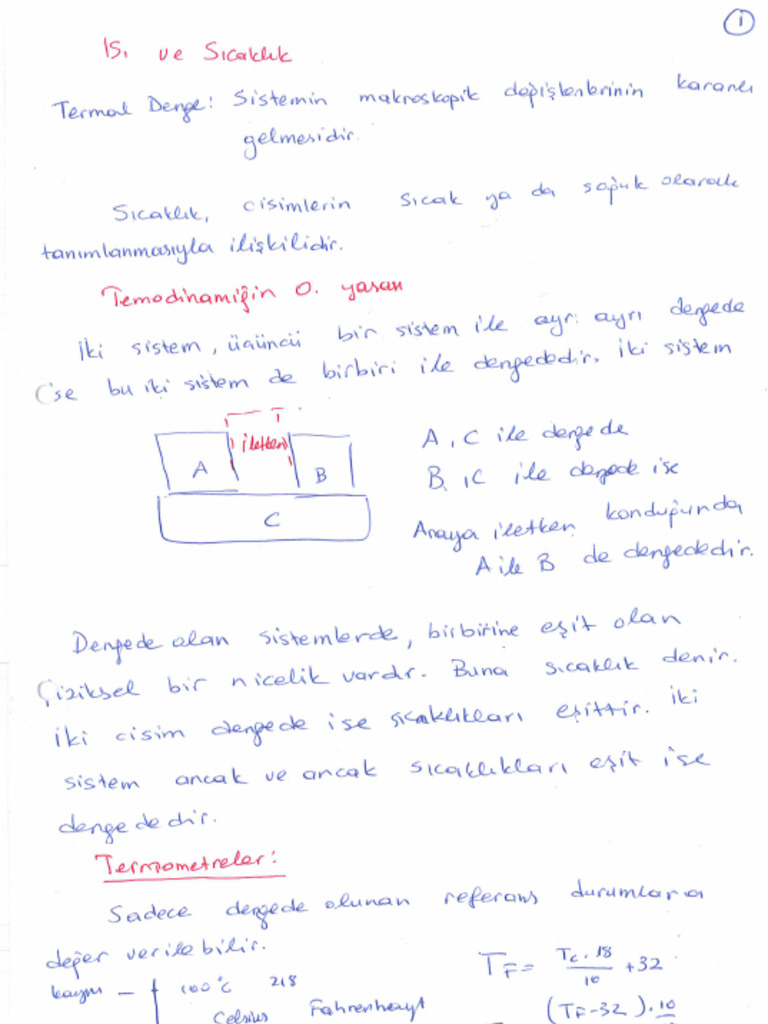 1
Isı ve Sıcaklık
Termal Denge: Sistemin makroskopik değişkenlerinin kararlı
gelmesidir.
Sıcaklık, cisimlerin sıcak ya da soğuk olarak
tanımlanmasıyla ilişkilidir.
Temodinamiğin 0. yasası
İki sistem, üçüncü bir sistem ile ayrı ayrı dengede
ise bu iki sistem de birbiri ile dengededir. İki sistem
T
iletken
A
B
C
A, C ile dengede
B, C ile dengede ise
Araya iletken konduğunda
A ile B de dengededir.
Dengede olan sistemlerde, birbirine eşit olan
fiziksel bir nicelik vardır. Buna sıcaklık denir.
İki cisim dengede ise sıcaklıkları eşittir. İki
sistem ancak ve ancak sıcaklıkları eşit ise
dengededir.
Termometreler:
Sadece dengede olunan referans durumlara
değer verilebilir.
kaynı — 100°C 218
Celsius Fahrenhayt
TF = Tc . 18 / 10 + 32
(TF - 32) . 10